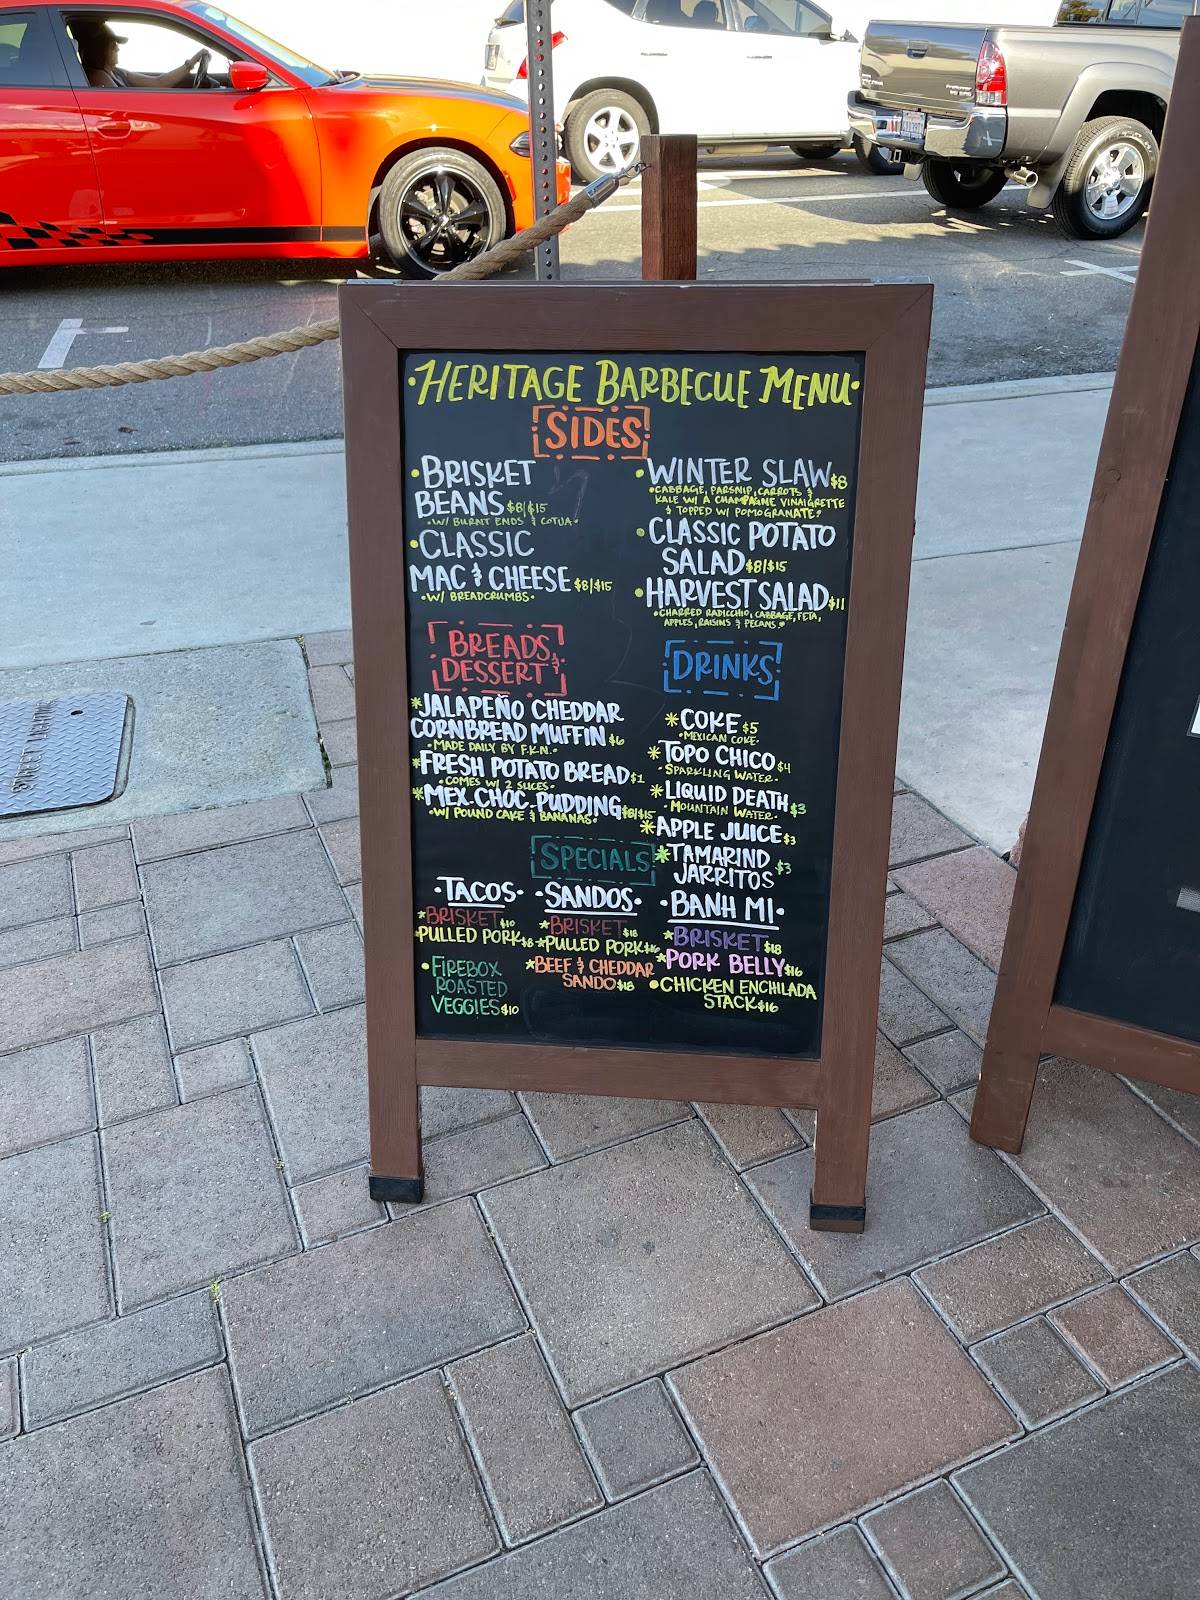 ·HERITAGE BARBECUE MENU·
SIDES
·BRISKET
BEANS $8|$15
·W/ BURNT ENDS & COTIJA·
·CLASSIC
MAC & CHEESE $8|$15
·W/ BREADCRUMBS·
·WINTER SLAW $8
·CABBAGE, PARSNIP, CARROTS &
KALE W/ A CHAMPAGNE VINAIGRETTE
& TOPPED W/ POMOGRANATE·
·CLASSIC POTATO
SALAD $8|$15
·HARVEST SALAD $11
·CHARRED RADICCHIO, CABBAGE, FETA,
APPLES, RAISINS & PECANS·
BREADS &
DESSERT
*JALAPEÑO CHEDDAR
CORNBREAD MUFFIN $6
·MADE DAILY BY F.K.N.·
*FRESH POTATO BREAD $1
·COMES W/ 2 SLICES·
*MEX. CHOC. PUDDING $8|$15
·W/ POUND CAKE & BANANAS·
DRINKS
*COKE $5
·MEXICAN COKE·
*TOPO CHICO $4
·SPARKLING WATER·
*LIQUID DEATH $3
·MOUNTAIN WATER·
*APPLE JUICE $3
*TAMARIND
JARRITOS $3
SPECIALS
·TACOS·
*BRISKET $10
*PULLED PORK $8
·FIREBOX
ROASTED
VEGGIES $10
·SANDOS·
*BRISKET $18
*PULLED PORK $16
*BEEF & CHEDDAR
SANDO $18
·BANH MI·
*BRISKET $18
*PORK BELLY $16
·CHICKEN ENCHILADA
STACK $16
STREET LIGHTING